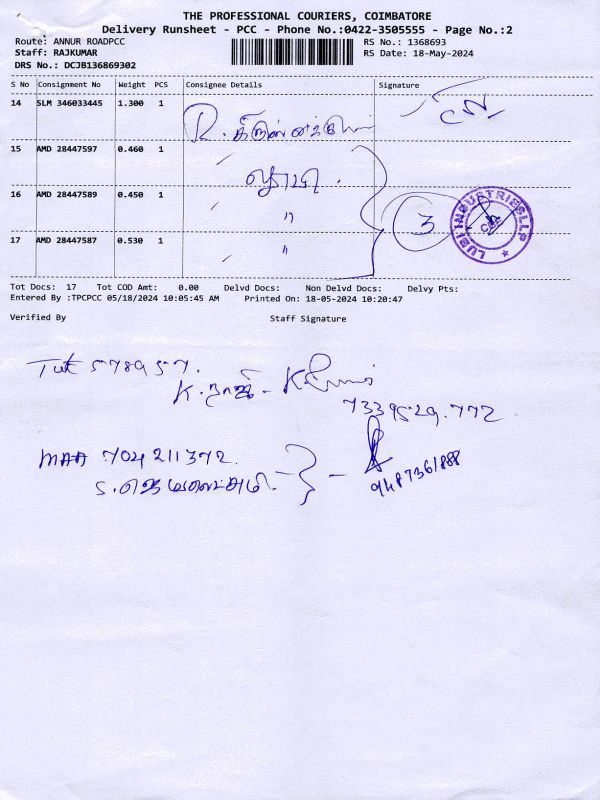 THE PROFESSIONAL COURIERS, COIMBATORE
Delivery Runsheet - PCC - Phone No.:0422-3505555 - Page No.:2
Route: ANNUR ROADPCC RS No.: 1368693
Staff: RAJKUMAR RS Date: 18-May-2024
DRS No.: DCJB136869302
S No Consignment No Weight PCS Consignee Details Signature
14 SLM 346033445 1.300 1 R.
15 AMD 28447597 0.460 1
16 AMD 28447589 0.450 1 "
3
LUBI INDUSTRIES LLP
CBE
17 AMD 28447587 0.530 1 "
Tot Docs: 17 Tot COD Amt: 0.00 Delvd Docs: Non Delvd Docs: Delvy Pts:
Entered By :TPCPCC 05/18/2024 10:05:45 AM Printed On: 18-05-2024 10:20:47
Verified By Staff Signature
K.
7339529.772
MAA 704 211372.
9487361888